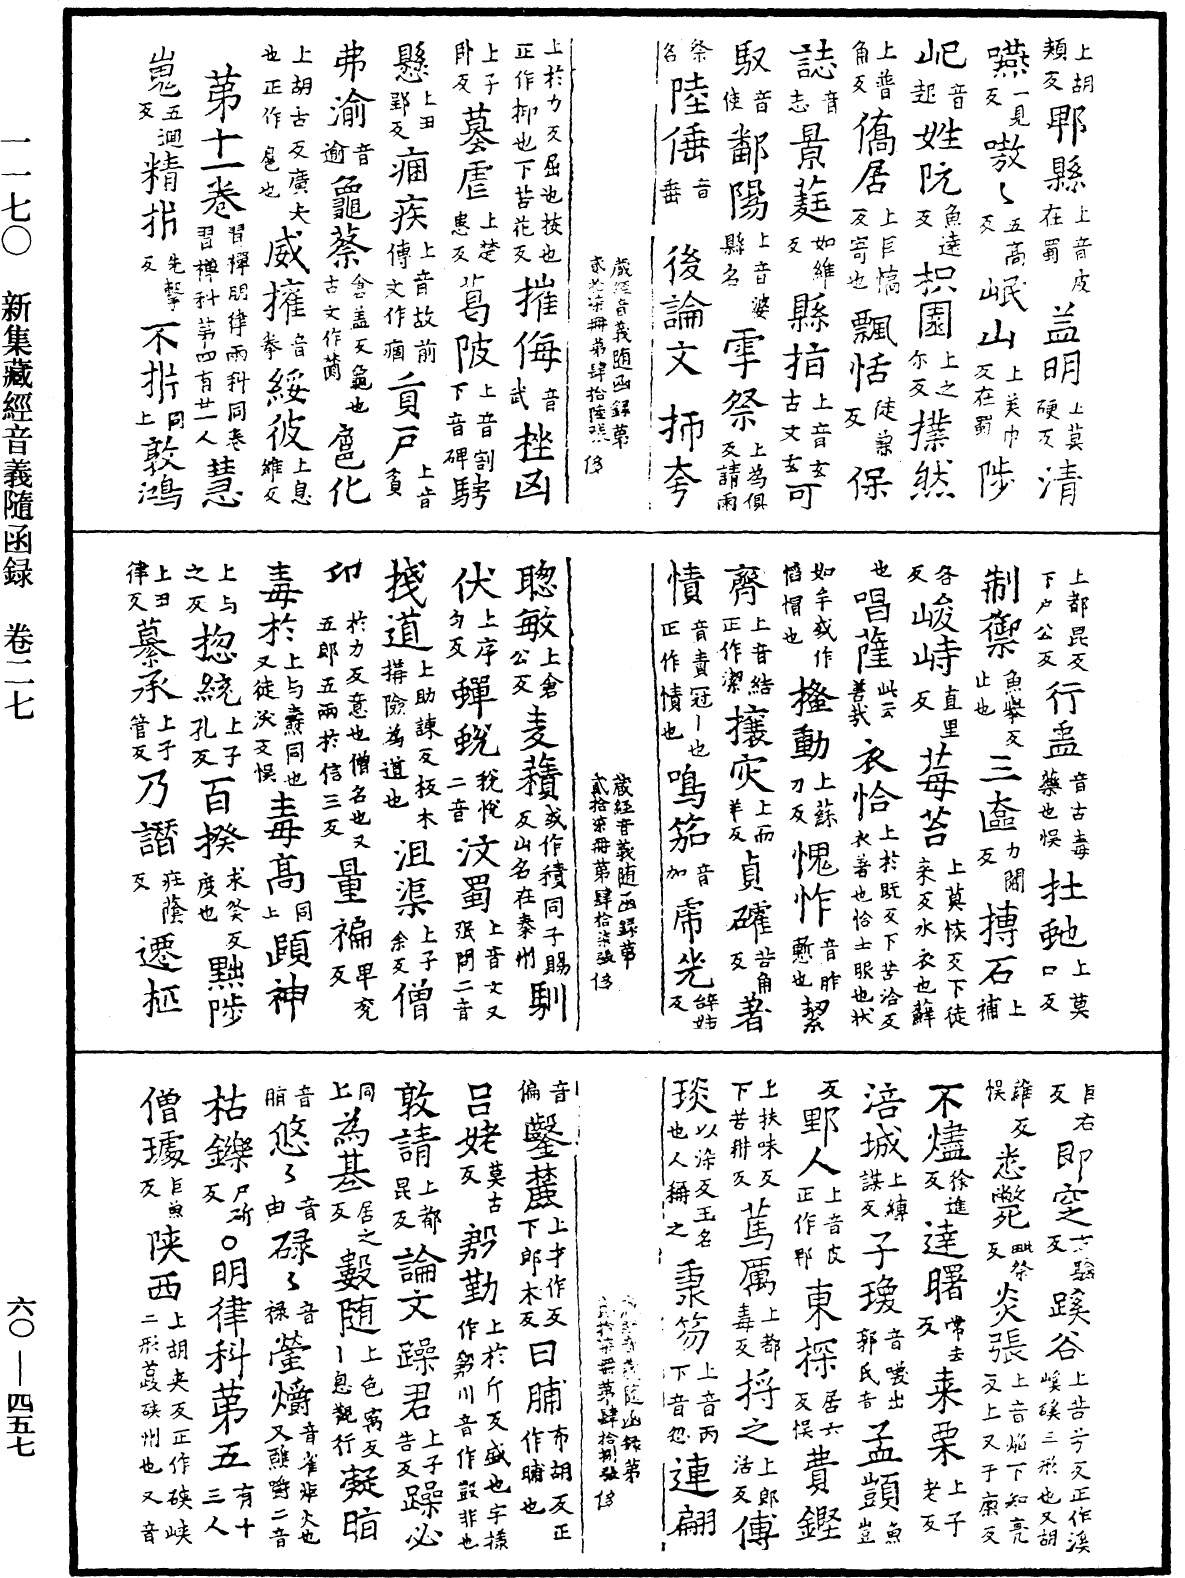 一一七〇　新集藏經音義隨函録　卷二七　六〇—四五七
上胡頰反郫縣上音皮在蜀益明上莫硬反清
嚥一見反嗷〻五高反岷山上美巾反在蜀陟
屺音起姓阮魚遠反枳園上之尔反㩧然
上普角反僑居上巨憍反寄也飄恬徒𥹭反保
誌音志景蕤如維反縣指上音玄古文玄可
馭音使鄱陽上音婆縣名雩祭上為俱反請雨
祭名陸倕音垂　後論文　抪夸
藏經音義随函録第貳拾柒冊第肆拾陸張　侈
上於力反屈也按也正作抑也下苦花反摧侮音武桃凶
上子卧反蟇虐上楚患反葛陂上音割下音碑騁
懸上丑郢反痼疾上音故前傳文作痼負戸上音負
弗渝音逾龜蔡倉盖反龜也古文作𦺇扈化
上胡古反廣大也正作扈也威㩲音拳綏彼上息維反
第十一卷習禪明律兩科同卷習禪科第四有廿一人慧
嵬五迴反精㭊先擊反不㭊同上敦鴻
上都昆反下户公反行蛊音古毒藥也悞杜虵上莫口反
制禦魚舉反止也三𡔷力閻反摶石上補
各反峻峙直里反莓苔上莫恢反下徒来反水衣也蘚
也唱薩此云善哉衣恰上於既反下苦洽反衣著也恰士服也状
如弁或作㡊帽也搔動上蘇刀反愧怍音昨慙也絜
齊上音結正作潔攘灾上而羊反貞確苦角反著
幘音責冠丨也正作幘也鳴笳音加虎兕辞姊反
藏經音義随函録第貳拾柒冊第肆拾柒張　侈
聦敏上倉公反麦𧂐或作積同子賜反山名在秦州馴
伏上序匀反蟬蛻税悦二音汶蜀上音文又珉問二音
棧道上助諫反板木搆險為道也沮渠上子余反僧
卬於力反意也僧名也又五郎五兩於信三反量褊卑兖反
毒於上与纛同也又徒沃反悞毒髙同上䫀神
上与之反揔統上子孔反百揆求癸反度也黜陟
上丑律反纂承上子管反乃譖疰䕃反遷柩
巨右反即窆方驗反蹊谷上苦兮反正作溪嵠磎三形也又胡
雞反悞悉斃毗祭反炎張上音焰下知亮反上又于廉反
不燼徐進反達曙常去反棗栗上子老反
涪城上縛謀反子瑗音噯出郭氏音孟顗魚豈
反郢人上音皮正作郫東探居六反悞費鏗
上扶味反下苦耕反篤厲上都毒反捋之上郎活反傅
琰以染反玉名也人稱之秉笏上音丙下音忽連翩
貳拾柒冊第肆拾捌張　侈
音偏鑿麓上才作反下郎木反曰脯布胡反正作晡也
吕姥莫古反躬勤上於斤反盛也字樣作
敦請上都昆反論文躁君上子告反躁必
同上為基居之反數随上色𥧌反丨息觀行凝晦
音脂悠〻音由碌〻音禄瑩爝音雀炬火也又𤒈爵二音
枯鑠尸斫反○明律科第五有十三人
僧璩巨魚反陕西上胡夾反正作硤峽二形䕣硖州也又音